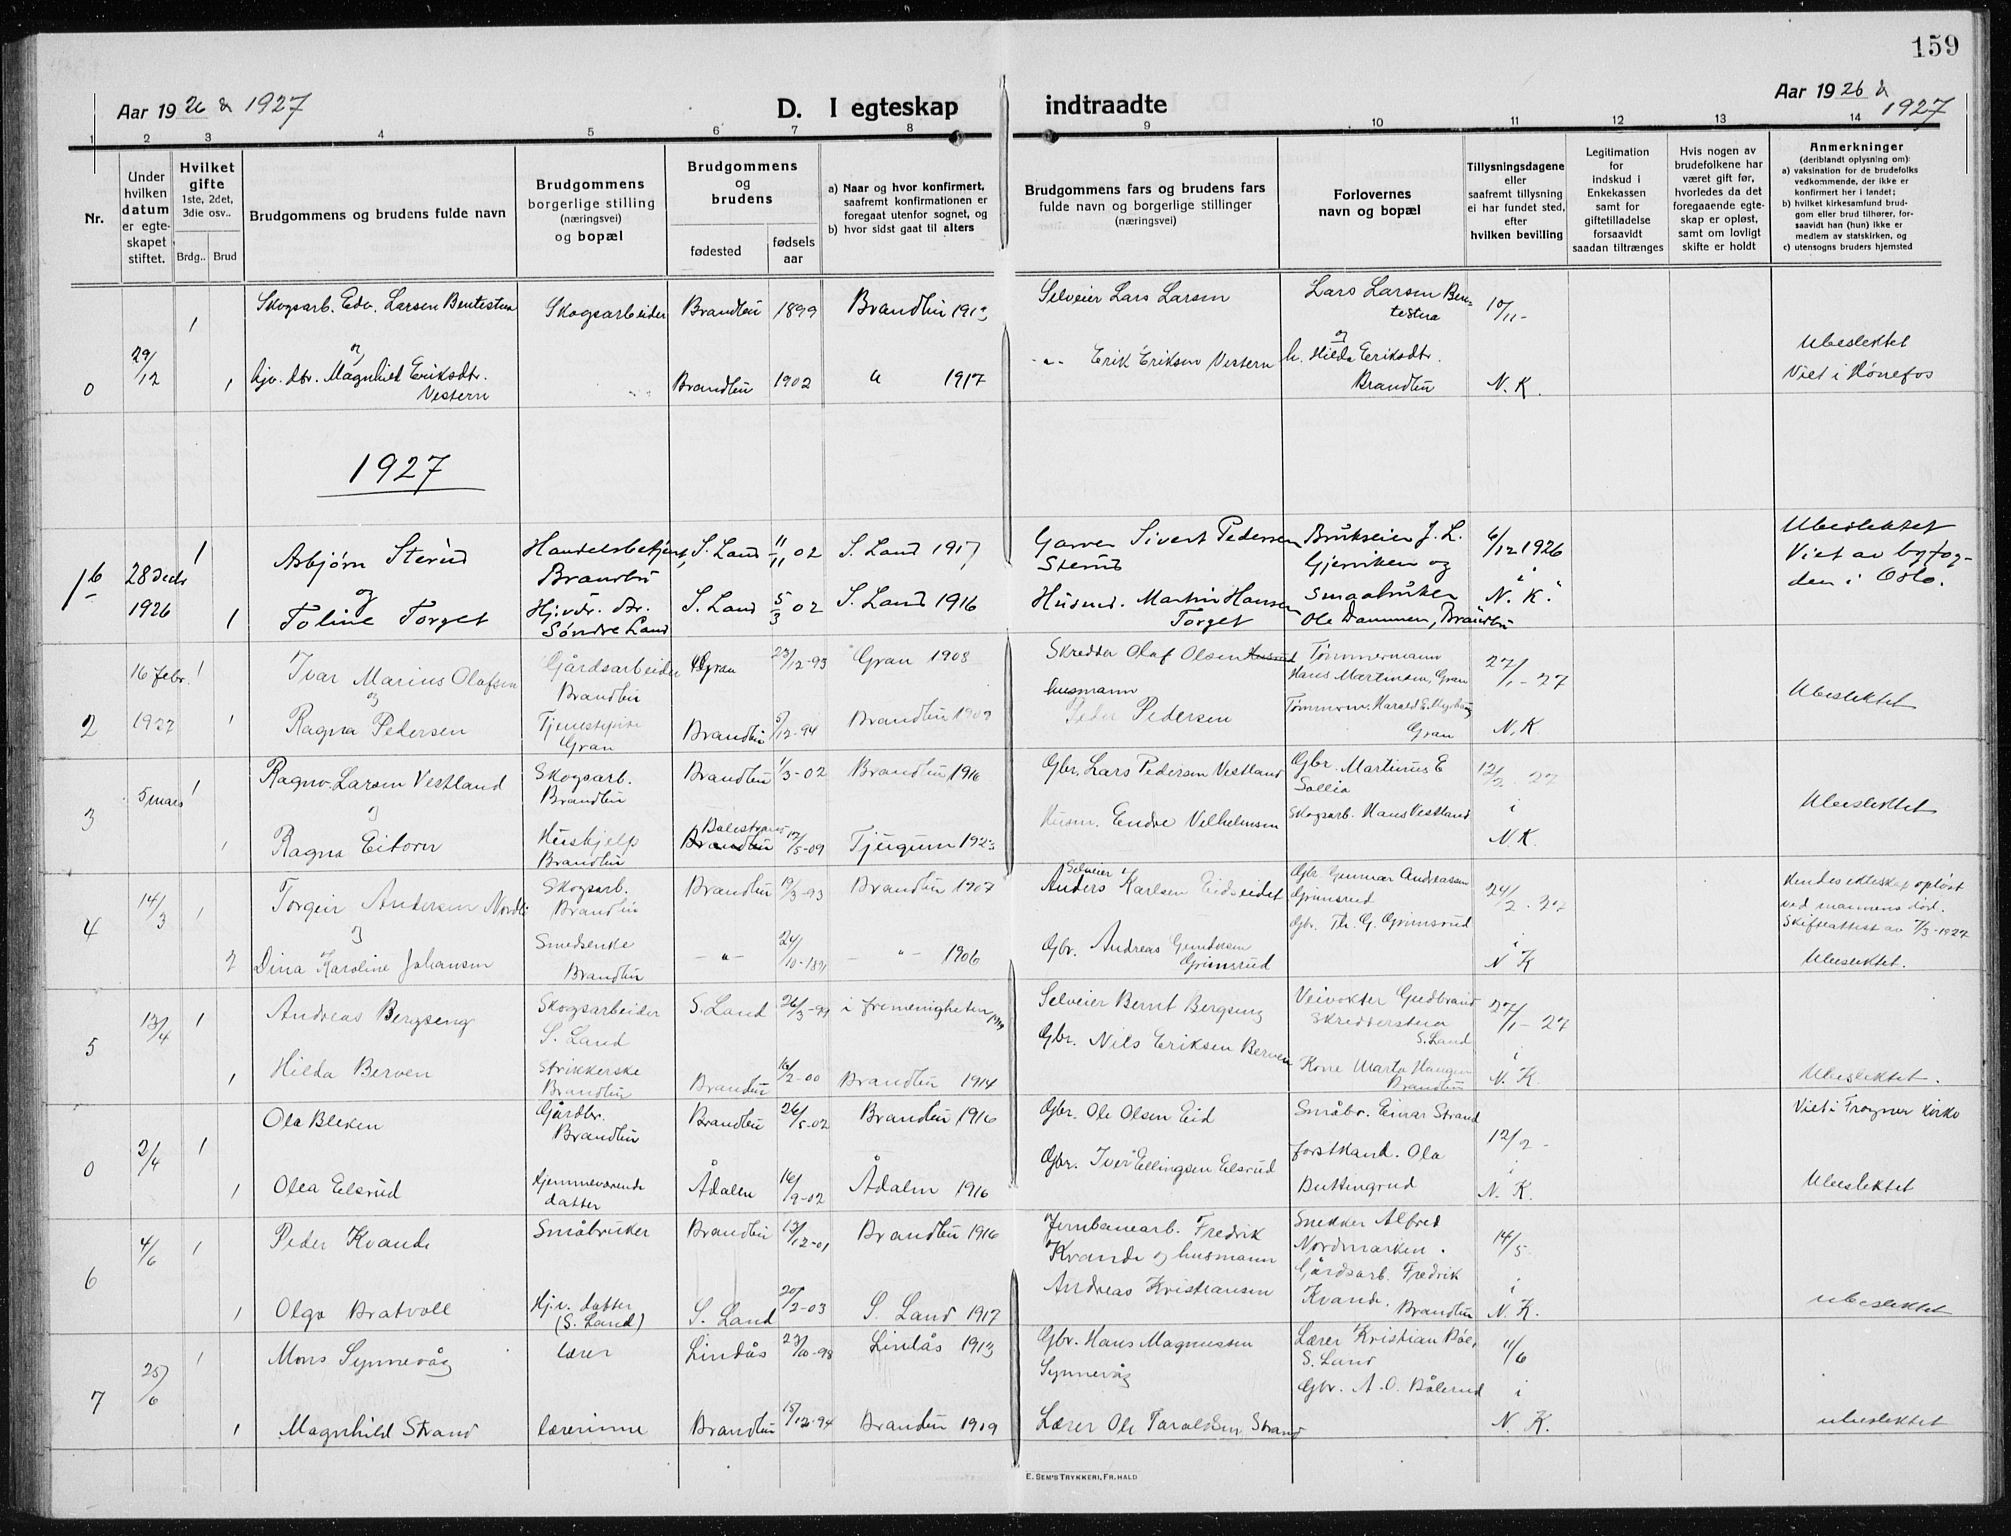 159
Aar 1926 & 1927
D. I egteskap indtraadte
Aar 1926 &
1927
1 2 3 4 5 6 7 8 9 10 11 12 13 14
Nr.
Under
hvilken
datum
er egte-
skapet
stiftet.
Hvilket
gifte
1ste, 2det,
3die osv..
Brdg.. Brud
Brudgommens og brudens fulde navn
Brudgommens
borgerlige stilling
(næringsvei)
og bopæl
Brudgommens
og
brudens
fødested
fødsels
aar
a) Naar og hvor konfirmert,
saafremt konfirmationen er
foregaat utenfor sognet, og
b) hvor sidst gaat til alters
Brudgommens fars og brudens fars
fulde navn og borgerlige stillinger
(næringsvei)
Forlovernes
navn og bopæl
Tillysningsdagene
eller
saafremt tillysning
ei har fundet sted,
efter
hvilken bevilling
Legitimation
for
indskud i
Enkekassen
samt for
giftetilladelse
forsaavidt
saadan tiltrænges
Hvis nogen av
brudefolkene har
været gift før,
hvorledes da det
foregaaende egte-
skap er opløst,
samt om lovligt
skifte er holdt
Anmerkninger
(deriblandt oplysning om):
a) vaksination for de brudefolks
vedkommende, der ikke er
konfirmert her i landet;
b) hvilket kirkesamfund brud-
gom eller brud tilhører, for-
saavidt han (hun) ikke er
medlem av statskirken, og
c) utensogns bruders hjemsted
Skogsarb. Edv. Larsen Bentestua Skogsarbeider Brandbu 1899 Brandbu 1913 Selveier Lars Larsen Lars Larsen Ben-
testua 10/11-
1
0 29/12 og og Ubeslektet
1 hjv. dtr. Magnhild Eriksdtr. Brandbu 1902 " 1917 - " - Erik Eriksen Vestern h. Hilda Eriksdtr. Viet i Hønefos
Vestern Brandbu N. K.
1927
1 Asbjørn Sterud Handelsbetjent, S. Land 11/11 02 S. Land 1917 Garver Sivert Pedersen Brukseier J. L. 6/12 1926 Ubeslektet
Brandbu Sterud Gjerviken og Viet av byfog-
1 28 decbr og den i Oslo.
1926 1 Toline Torget Hjvdr. dtr. S. Land 5/3 02 S. Land 1916 Husmd. Martin Hansen Smaabruker N. K.
Søndre Land Torget Ole Dammen, Brandbu
16 febr. 1 Ivar Marius Olafsen Gårdsarbeider Gran 23/12-93 Gran 1908 Skredder Olaf Olsen Tømmermann 27/1-27
og Brandbu husmann Hans Martinsen, Gran
2 1927 1 Ragna Pedersen Tjenestepike Brandbu 5/12-94 Brandbu 1909 Peder Pedersen Tømmerm. Harald E. Ubeslektet
Gran Gran N. K
Ragnv. Larsen Vestland Skogsarb. Brandbu 1/3-02 Brandbu 1916 Gbr. Lars Pedersen Vestland Gbr. Martinus E 12/2-27
3 5 mars 1 Brandbu Sollia
og i Ubeslektet
1 Ragna Eitorn Hushjelp Balestrand 17/5-09 Tjugum 1923 Husm. Endre Velhelmsen Skogsarb. Hans Vestland
Brandbu Brandbu N. K.
14/3 1 Torgeir Andersen Nordli Skogsarb. Brandbu 19/3-93 Brandbu 1907 Selveier Gbr. Gunnar Andreassen 24/2-27 Hendes ekteskap opløst
4 Brandbu Anders Karlsen Eidseidet Grimsrud ved mannens død.
og Gbr. Th. G. Grimsrud Skifteattest av 7/3-1927
2 Dina Karoline Johansen Smedsenke - " - 24/10-1891 - " - 1906 Gbr. Andreas i
Brandbu Grimsrud N K Ubeslektet.
5 13/4 1 Andreas Bergseng Skogsarbeider S. Land 26/3-99 i fremenigheten Selveier Bernt Bergseng Veivokter Gudbrand 27/1-27
S. Land Skredderstua
S. Land
1 Hilda Berven Strikkerske Brandbu 16/2-00 Brandbu 1914 Gbr. Nils Eriksen Berven Kone Marta Haugen i
Brandbu Brandbu N. K. Ubeslektet.
0 2/4 1 Ola Bleken Gårdbr. Brandbu 26/5-02 Brandbu 1916 Gbr. Ole Olsen Eid Småbr. Einar Strand 12/2- Viet i Frogner kirke
Brandbu
1 Olea Elsrud hjemmeværende Ådalen 16/9-02 Ådalen 1916 Gbr. Iver Ellingsen Elsrud forstkand. Ola i
datter Buttingrud N. K. Ubeslektet
6 4/6 1 Peder Kvande Småbruker Brandbu 13/12-01 Brandbu 1916 Jernbanearb. Fredrik Snekker Alfred 14/5
Kvande og husmann Nordmarken.
Gårdsarb. Fredrik
1 Olga Bratvoll Hj.v. datter S. Land 20/2-03 S. Land 1917 Andreas Kristiansen Kvande. Brandbu i
(S. Land) N. K. ubeslektet
7 25/6 1 Mons Synnevåg lærer Lindås 23/10-98 Lindås 1913 Gbr. Hans Magnussen Lærer Kristian Bøe, 11/6
Synnevåg S. Land
Gbr. A. O. Bålerud i
1 Magnhild Strand lærerinne Brandbu 15/12-94 Brandbu 1909 Lærer Ole Taraldsen Strand N. K. ubeslektet
E. SEM'S TRYKKERI, FR.HALD